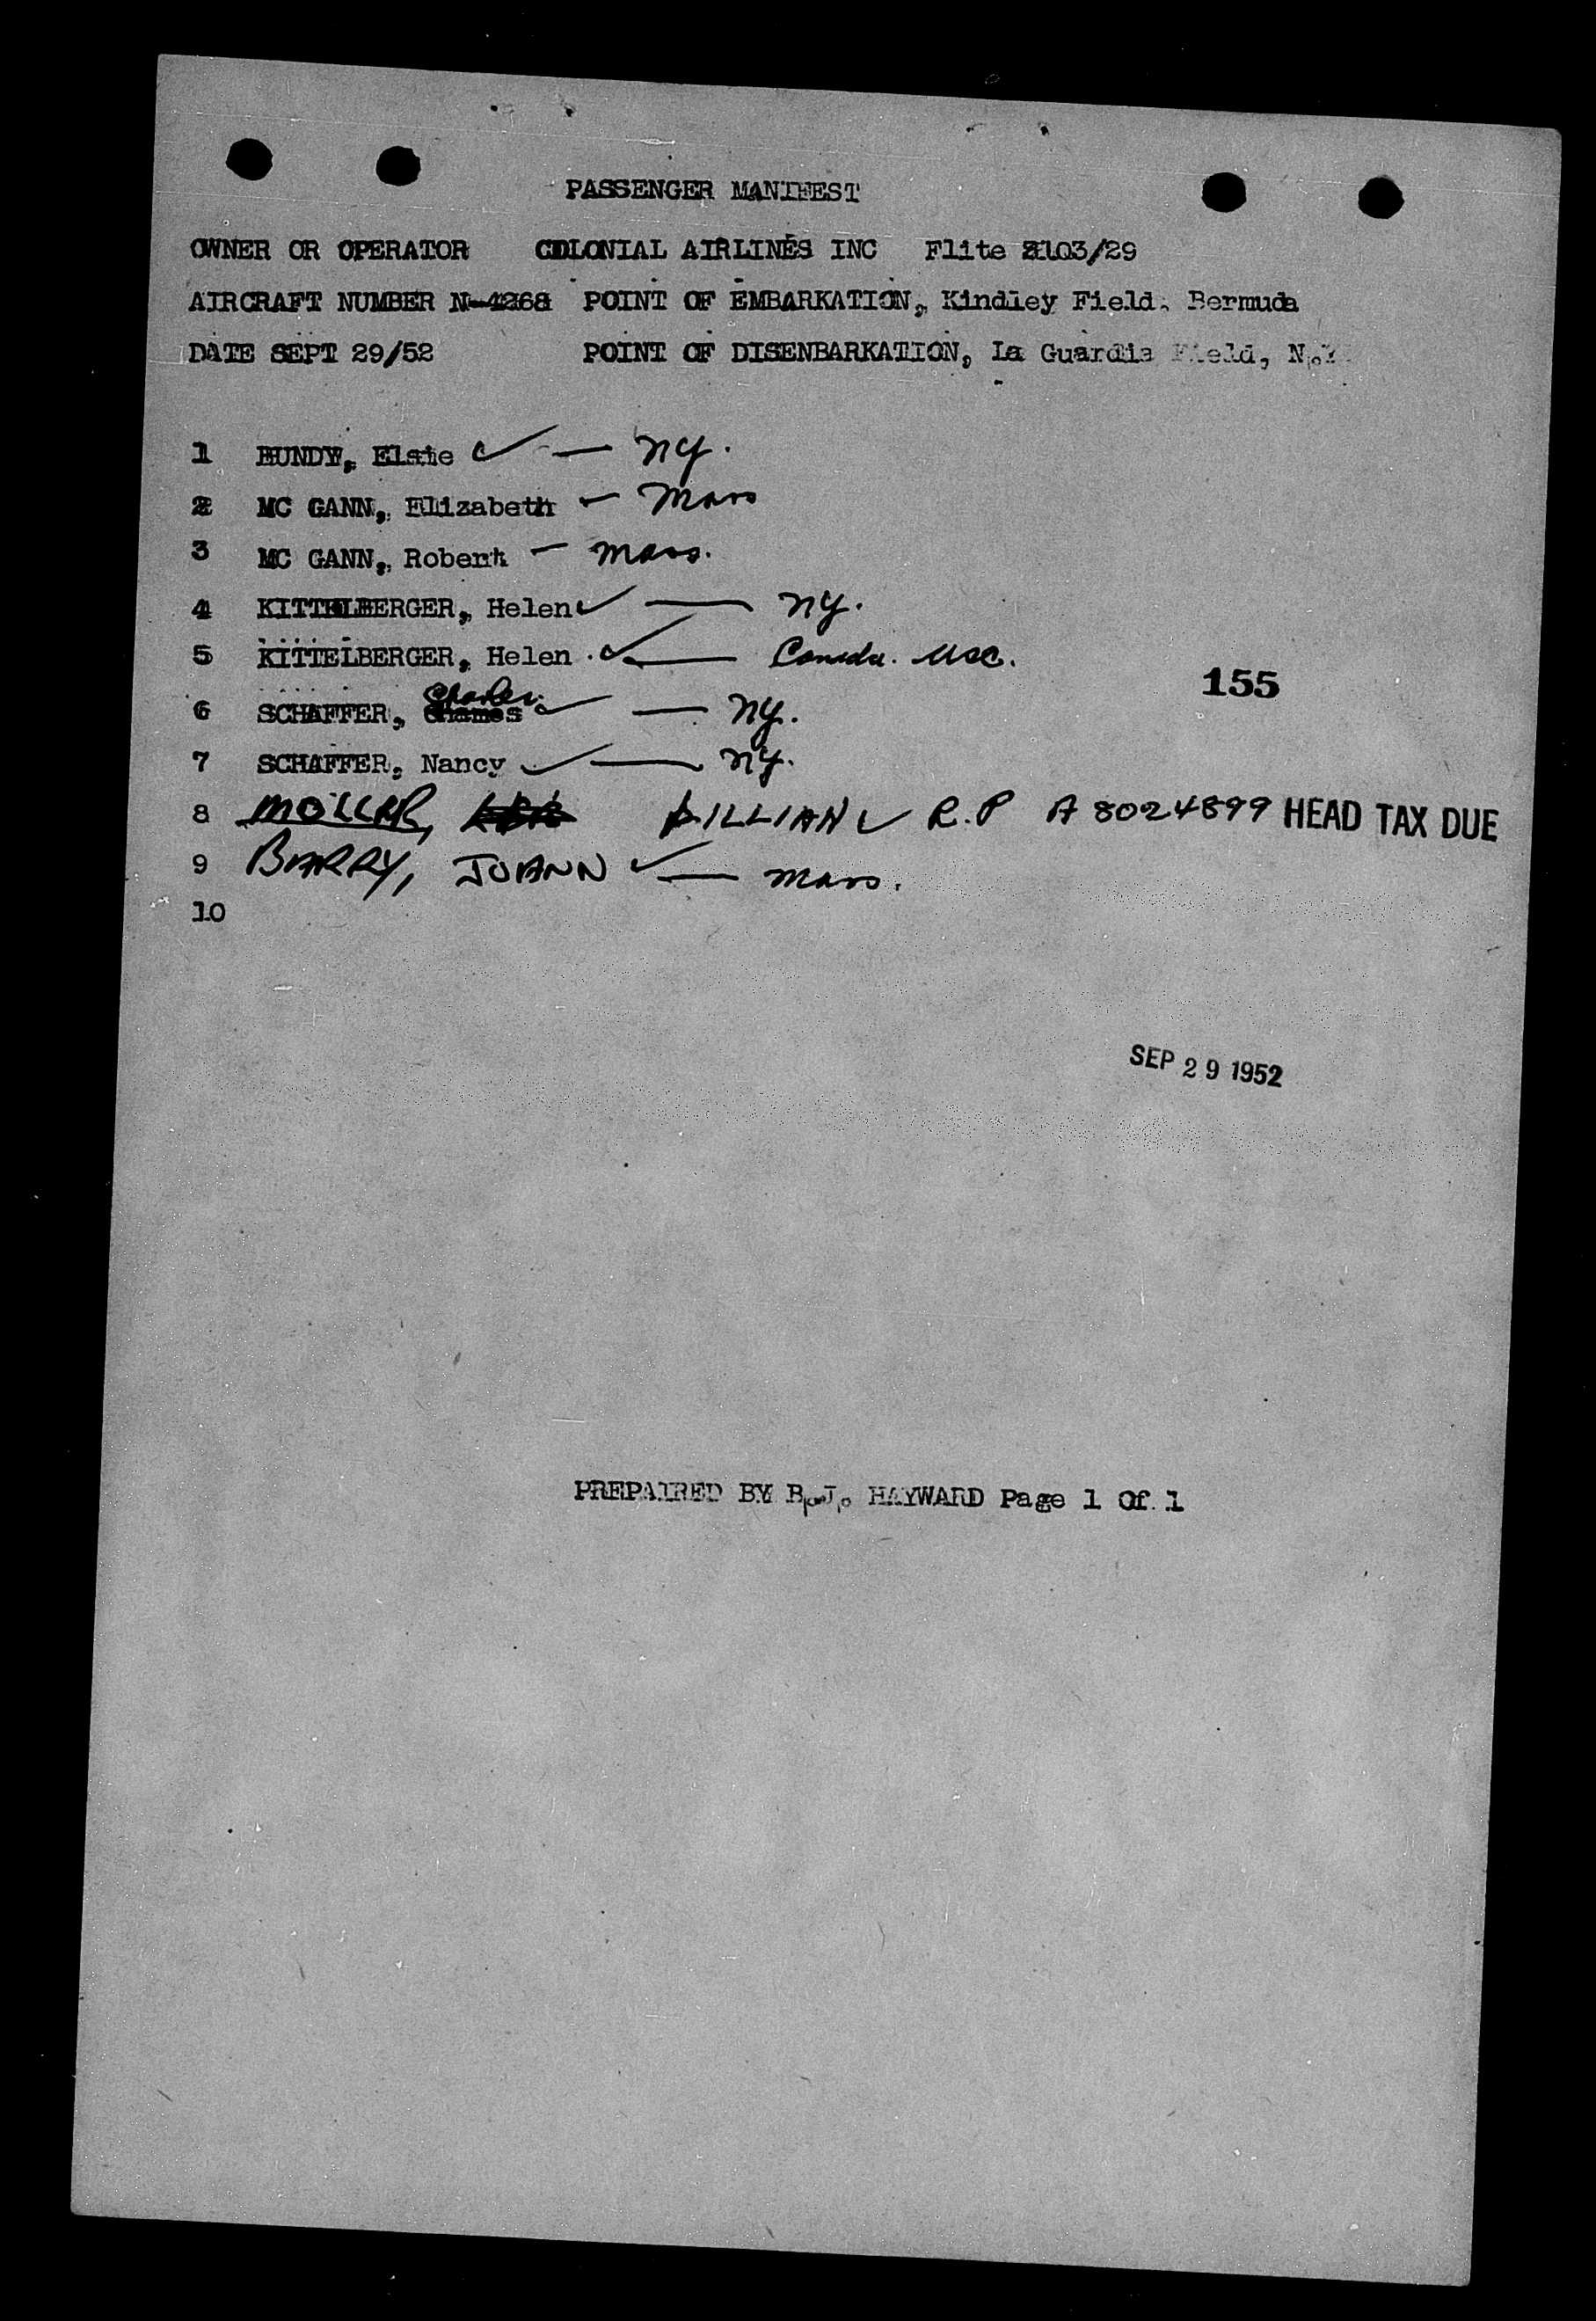 PASSENGER MANIFEST
OWNER OR OPERATOR COLONIAL AIRLINES INC Flite 2103/29
AIRCRAFT NUMBER N-4268 POINT OF EMBARKATION, Kindley Field, Bermuda
DATE SEPT 29/52 POINT OF DISENBARKATION, La Guardia Field, N.Y
1 BUNDY, Elsie ✓ — NY.
2 MC GANN, Elizabeth — Mass
3 MC GANN, Robert — Mass.
4 KITTELBERGER, Helen ✓ — NY.
5 KITTELBERGER, Helen ✓ — Canada. USC.
155
6 SCHAFFER, Charles ✓ — NY.
7 SCHAFFER, Nancy ✓ — NY.
8 MOLLER, LILLIAN ✓ R.P A 8024899 HEAD TAX DUE
9 BARRY, JOANN ✓ — Mass.
10
SEP 29 1952
PREPAIRED BY B.J. HAYWARD Page 1 Of 1